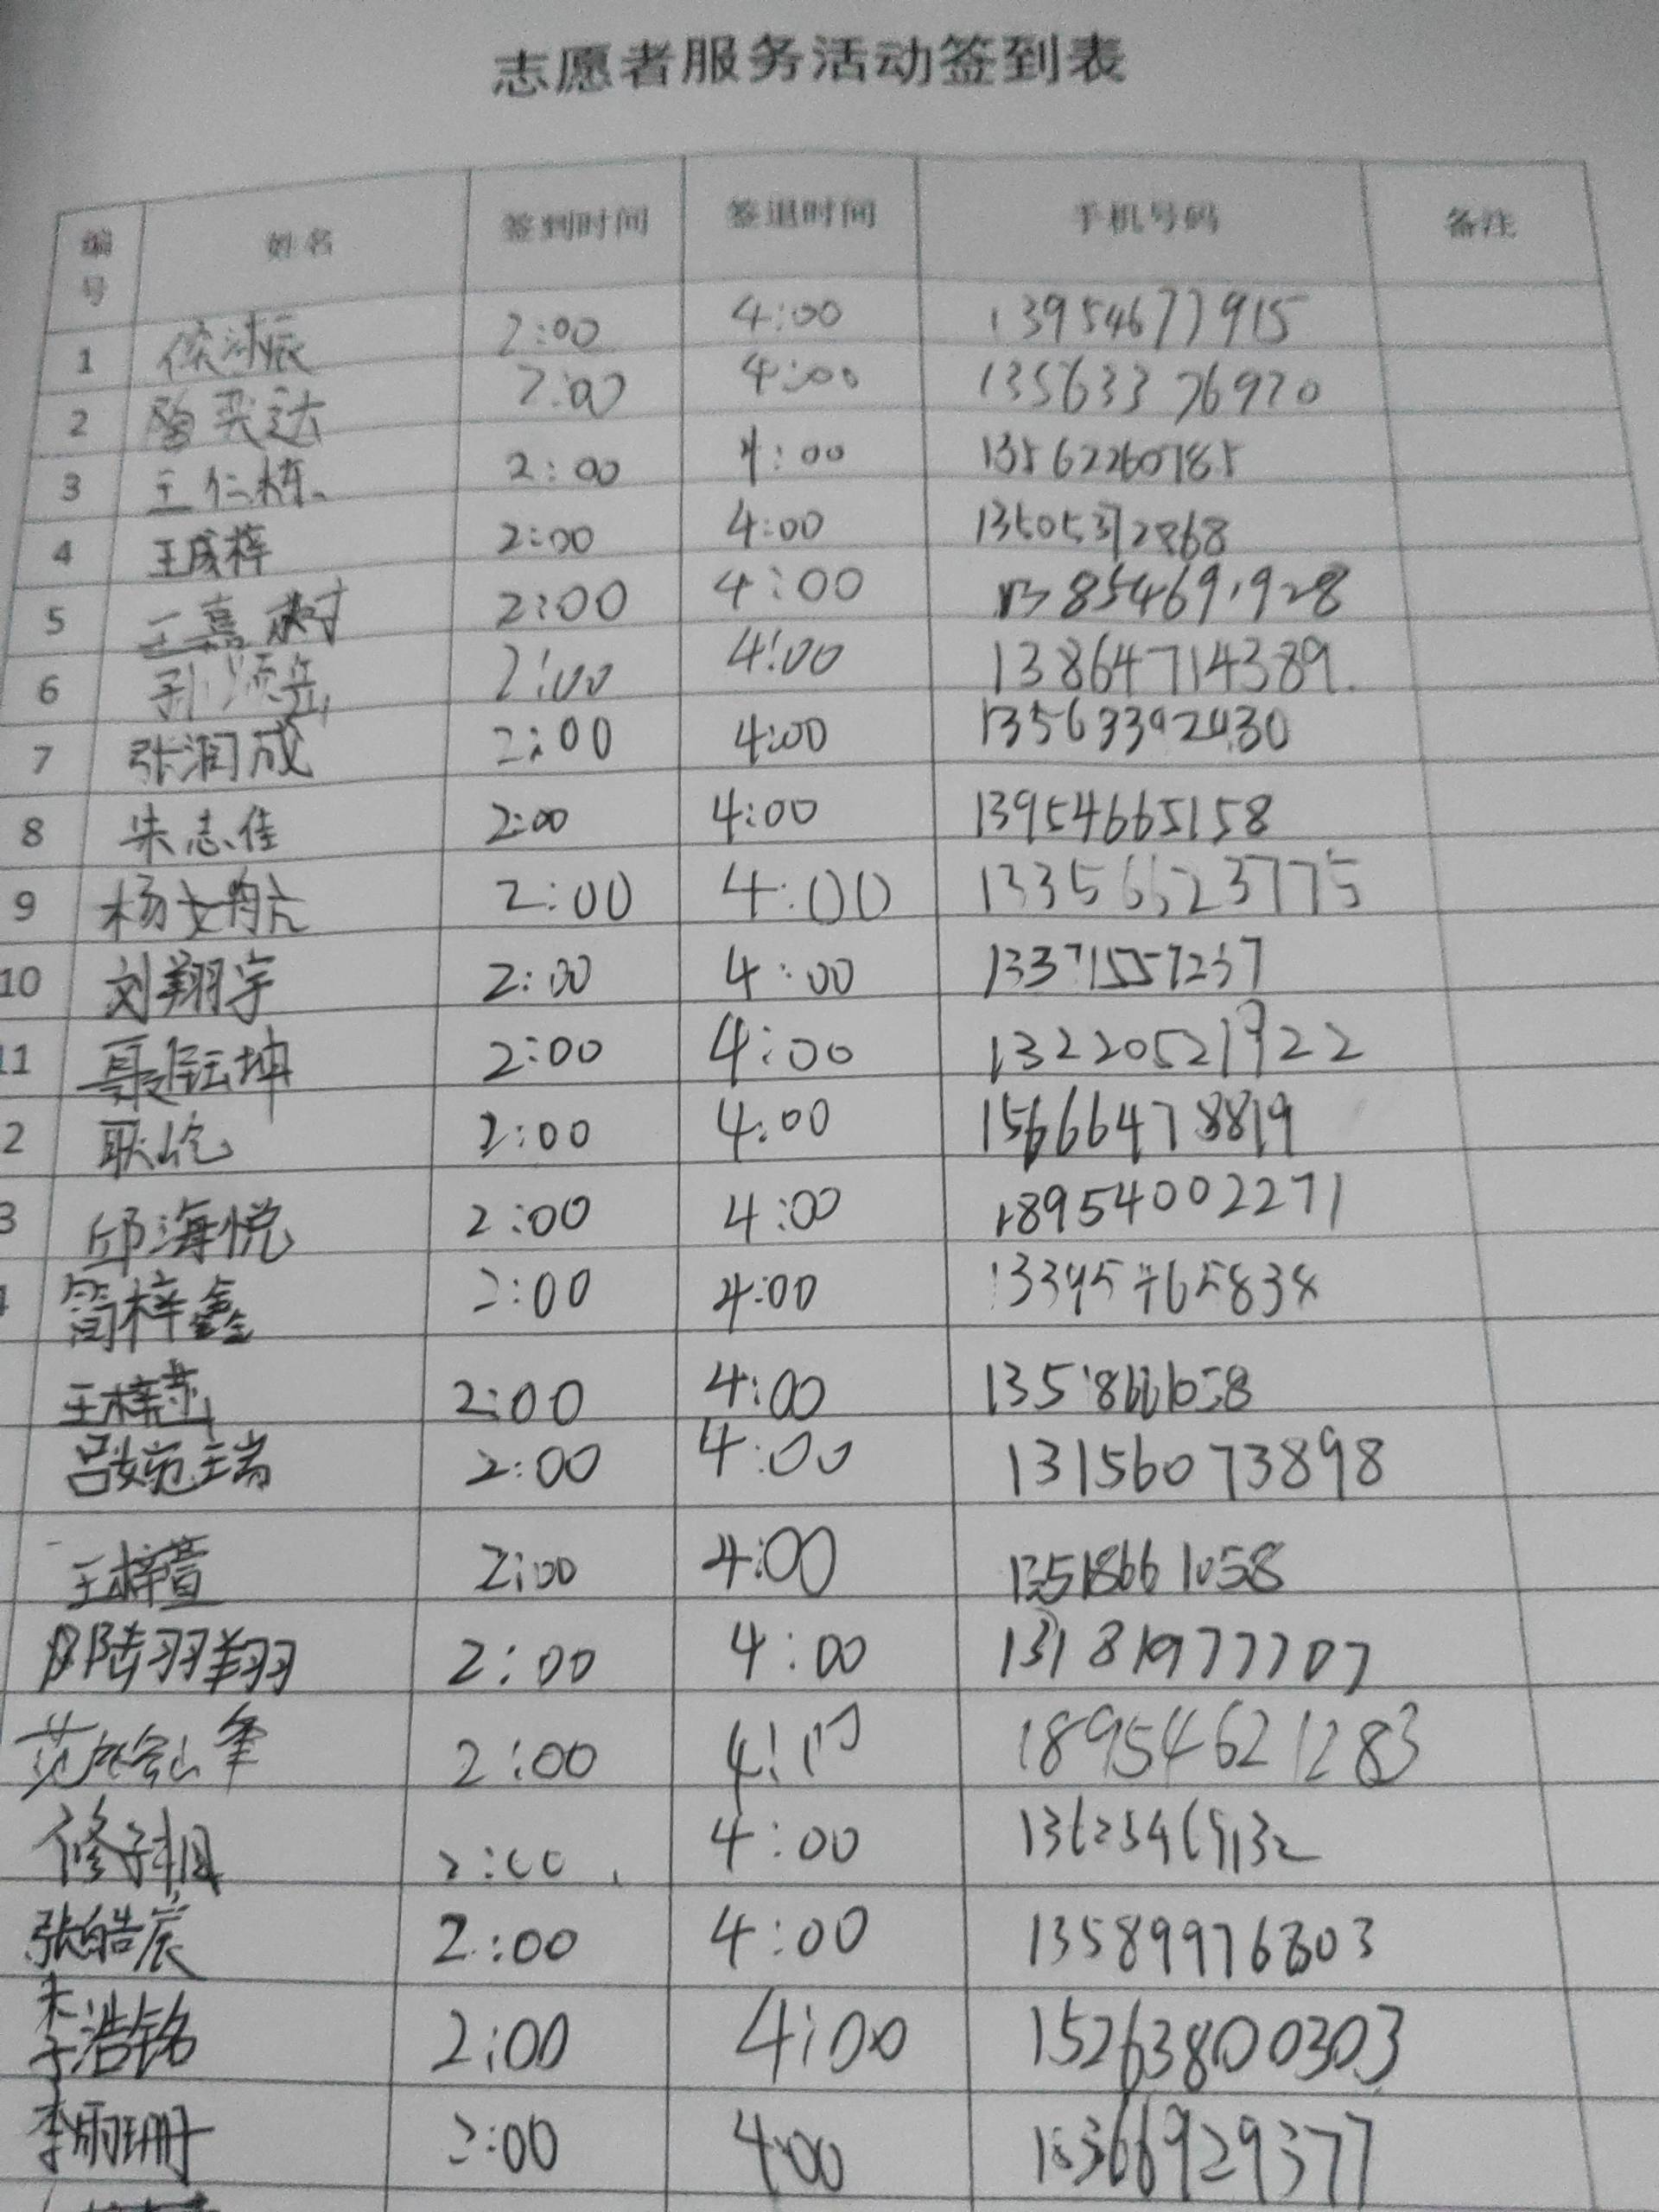 志愿者服务活动签到表
编号 姓名 签到时间 签退时间 手机号码 备注
1 2:00 4:00 13954677915
2 2:00 4:00 13563376970
3 王仁栋 2:00 4:00 13562260785
4 王成梓 2:00 4:00 13505372868
5 王嘉树 2:00 4:00 13854691928
6 2:00 4:00 13864714389
7 张润成 2:00 4:00 13563392430
8 朱志佳 2:00 4:00 13954665158
9 杨文航 2:00 4:00 13356623775
10 刘翔宇 2:00 4:00 13371557237
11 聂钰坤 2:00 4:00 13220521922
2 耿屹 2:00 4:00 15666478819
3 邱海悦 2:00 4:00 18954002271
简梓鑫 2:00 4:00
2:00 4:00
吕婉瑞 2:00 4:00 13156073898
王梓萱 2:00 4:00 13518661058
陆羽翔 2:00 4:00 13181977707
2:00 18954621283
修子桐 2:00 4:00
张皓宸 2:00 4:00 13589976803
2:00 4:00 15263800303
李雨珊 2:00 4:00 15366929377